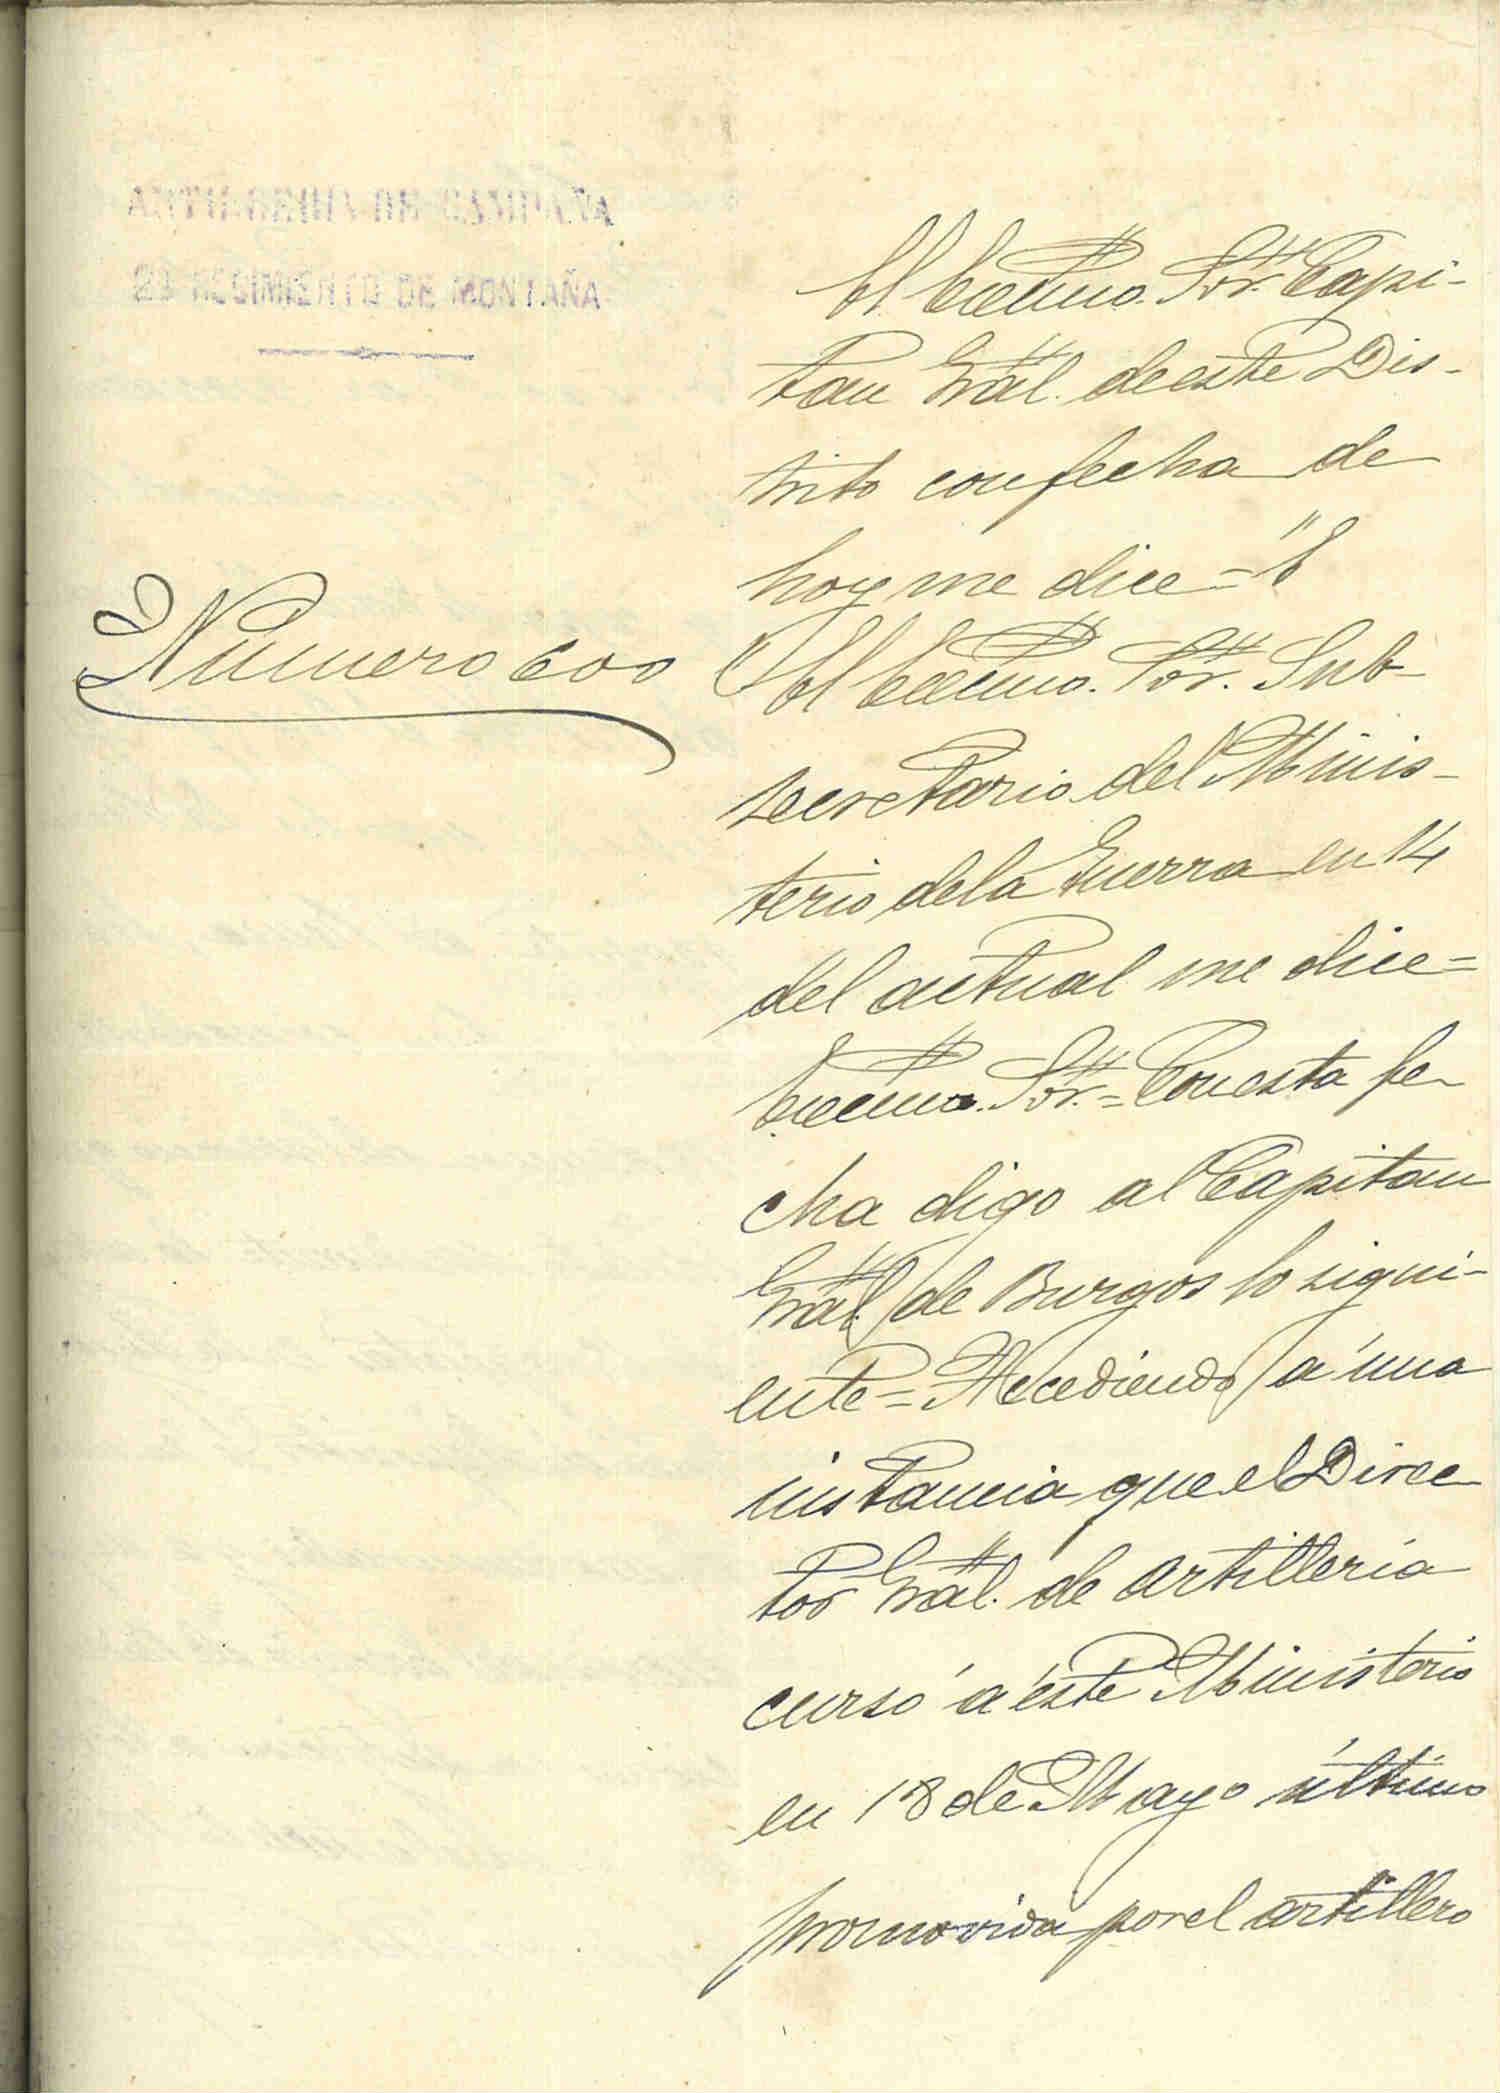 ARTILLERIA DE CAMPAÑA
2º REGIMIENTO DE MONTAÑA
Número 600
El Excmo. Sor. Capi-
tan Gral. de este Dis-
trito con fecha de
hoy me dice="E
El Excmo. Sor. Sub-
secretario del Minis-
terio dela Guerra en 14
del actual me dice=
Excmo. Sor.=Con esta fe-
cha digo al Capitan
Gral. de Burgos lo sigui-
ente=Accediendo á una
instancia que el Direc
tor Gral. de artillería
cursó á éste Ministerio
en 18 de Mayo último
promovida por el artillero